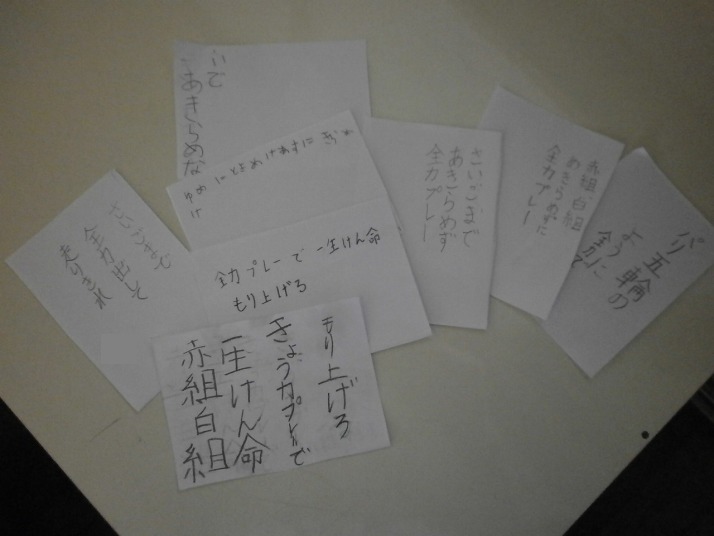 あきらめな
いで
ゆめにときめけあすにきらめ
け
さいごまで
あきらめず
全力プレー
赤組白組
あきらめずに
全力プレー
パリ五輪の
ように
さいごまで
全力出して
走りきれ
全力プレーで一生けん命
もり上げろ
もり上げろ
きょう力プレーで
一生けん命
赤組白組